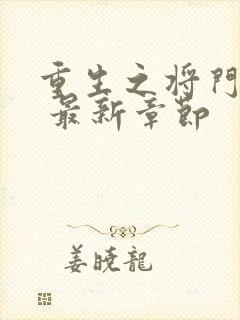 重生之将門
最新章節
姜曉龍